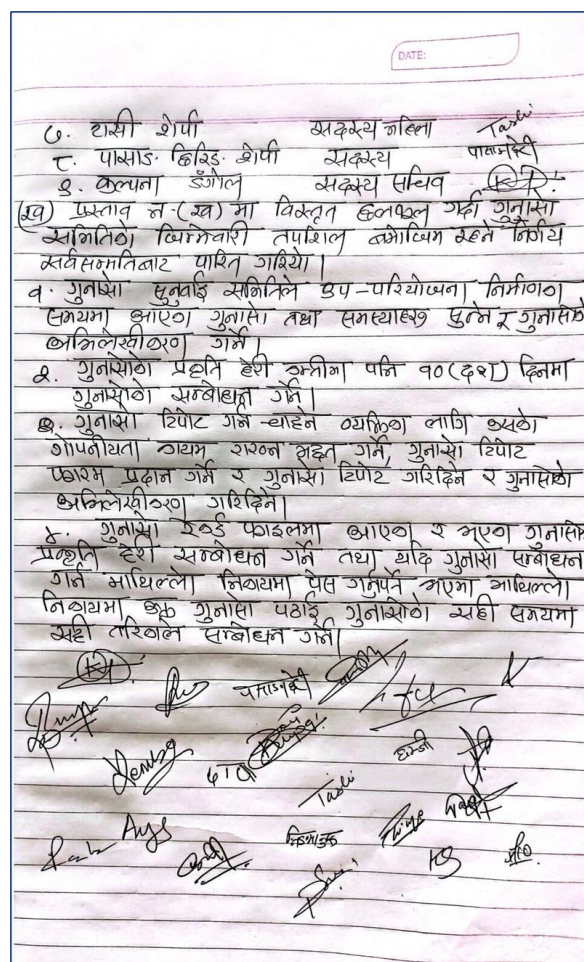 DATE:
७. टासी शेर्पा सदस्य महिला Tashi
८. पासाङ छिरिङ शेर्पा सदस्य
९. कल्पना डंगोल सदस्य सचिव
(ख) प्रस्ताव न.(ख) मा विस्तृत छलफल गर्दा गुनासो
समितिको जिम्मेवारी तपशिल बमोजिम रहने निर्णय
सर्वसम्मतिबाट पारित गरियो।
१. गुनासो सुनुवाई समितिले उप-परियोजना निर्माणका
समयमा आएका गुनासो तथा समस्याहरु सुन्ने र गुनासोको
अभिलेखीकरण गर्ने।
२. गुनासोको प्रकृति हेरी कम्तीमा पनि १०(दश) दिनमा
गुनासोको सम्बोधन गर्ने।
३. गुनासो टिपोट गर्न चाहने व्यक्तिका लागि उसको
गोपनीयता कायम राख्न मद्दत गर्ने, गुनासो टिपोट
फारम प्रदान गर्ने र गुनासो टिपोट गरिदिने र गुनासोको
अभिलेखीकरण गरिदिने।
४. गुनासो रेकर्ड फाइलमा आएका र भएका गुनासोको
प्रकृति हेरी सम्बोधन गर्ने तथा यदि गुनासो सम्बोधन
गर्न माथिल्लो निकायमा पेस गर्नुपर्ने भएमा माथिल्लो
निकायमा उक्त गुनासो पठाई गुनासोको सही समयमा
सही तरिकाले सम्बोधन गर्ने।
Tashi